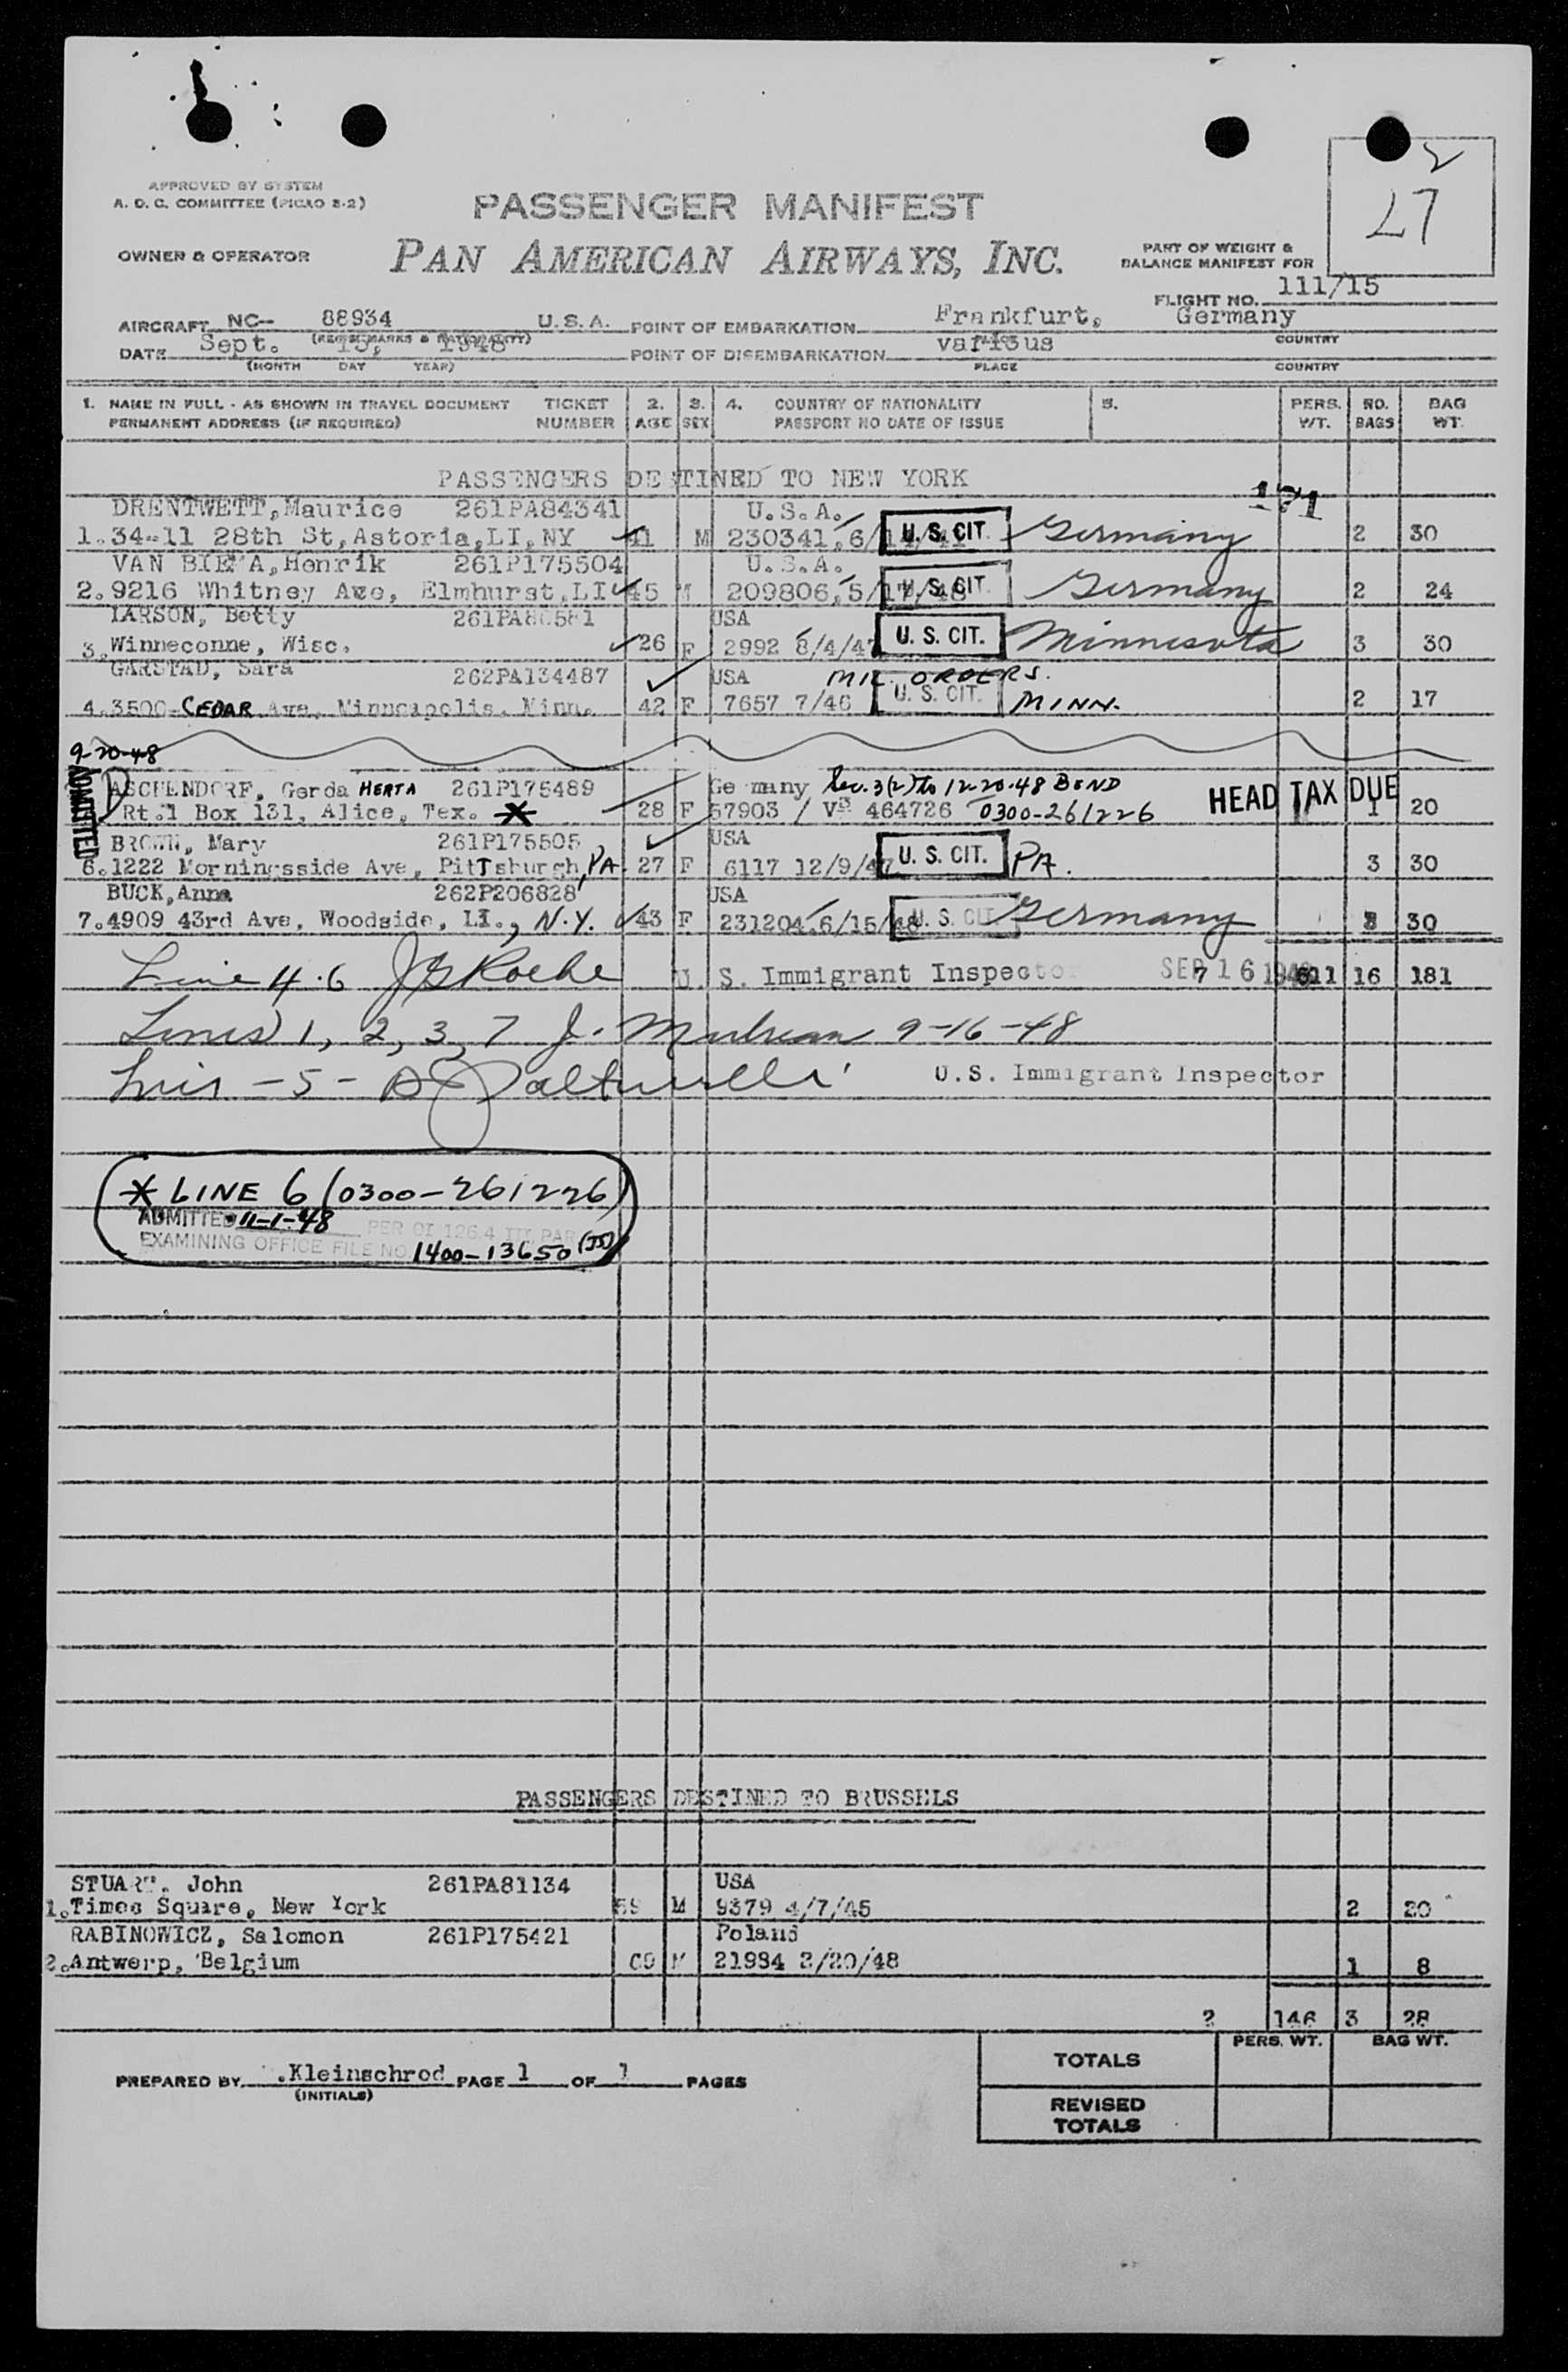 2
27
APPROVED BY SYSTEM
A. D. C. COMMITTEE (PICAO 8-2)
PASSENGER MANIFEST
OWNER & OPERATOR
PAN AMERICAN AIRWAYS, INC.
PART OF WEIGHT &
BALANCE MANIFEST FOR
FLIGHT NO. 111/15
AIRCRAFT NC-- 88934 U.S.A. POINT OF EMBARKATION Frankfurt, Germany
DATE Sept. 15, 1948 POINT OF DISEMBARKATION various
(MONTH DAY YEAR) PLACE COUNTRY
1. NAME IN FULL - AS SHOWN IN TRAVEL DOCUMENT TICKET 2. 3. 4. COUNTRY OF NATIONALITY 5. PERS. NO. BAG
PERMANENT ADDRESS (IF REQUIRED) NUMBER AGE SEX PASSPORT NO DATE OF ISSUE WT. BAGS WT.
PASSENGERS DESTINED TO NEW YORK
171
DRENTWETT, Maurice 261PA84341 U.S.A.
1. 34-11 28th St, Astoria, LI, NY 41 M 230341, 6/ U.S. CIT. Germany 2 30
VAN BIEMA, Henrik 261P175504 U.S.A.
2. 9216 Whitney Ave, Elmhurst, LI 45 M 209806, 5/17/48 U.S. CIT. Germany 2 24
LARSON, Betty USA
3. Winneconne, Wisc. 26 F 2992 8/4/47 U. S. CIT. Minnesota 3 30
GARSTAD, Sara 262PA134487 USA MIL ORDERS.
4. 3500 CEDAR Ave, Minneapolis. Minn. 42 F 7657 7/46 U. S. CIT. MINN. 2 17
9-20-48
ADMITTED
ASCHENDORF, Gerda HERTA 261P175489 Germany Sec. 3(2) to 12-20-48 BOND
Rt.1 Box 131, Alice, Tex. * 28 F 57903 / V 464726 0300-261226 HEAD TAX DUE 1 20
BROWN, Mary 261P175505 USA
6. 1222 Morningsside Ave, PitTsburgh, PA. 27 F 6117 12/9/47 U. S. CIT. PA. 3 30
BUCK, Anna 262P206828 USA
7. 4909 43rd Ave, Woodside, LI., N.Y. 43 F 231204, 6/15/48 U. S. CIT Germany 3 30
Line 4.6 J Roche U. S. Immigrant Inspector SEP 16 1948 7 611 16 181
Lines 1, 2, 3, 7 J. 9-16-48
5 - U.S. Immigrant Inspector
* LINE 6 (0300-261226)
ADMITTED 11-1-48 PER OI 126.4 III, PAR
EXAMINING OFFICE FILE NO. 1400-13650 (JJ)
PASSENGERS DESTINED TO BRUSSELS
STUART, John 261PA81134 USA
1. Times Square, New York 59 M 9379 4/7/45 2 20
RABINOWICZ, Salomon 261P175421 Poland
2. Antwerp, Belgium M 21984 /20/48 1 8
2 146 3 28
PERS. WT. BAG WT.
TOTALS
PREPARED BY .Kleinschrod PAGE 1 OF 1 PAGES
(INITIALS)
REVISED
TOTALS